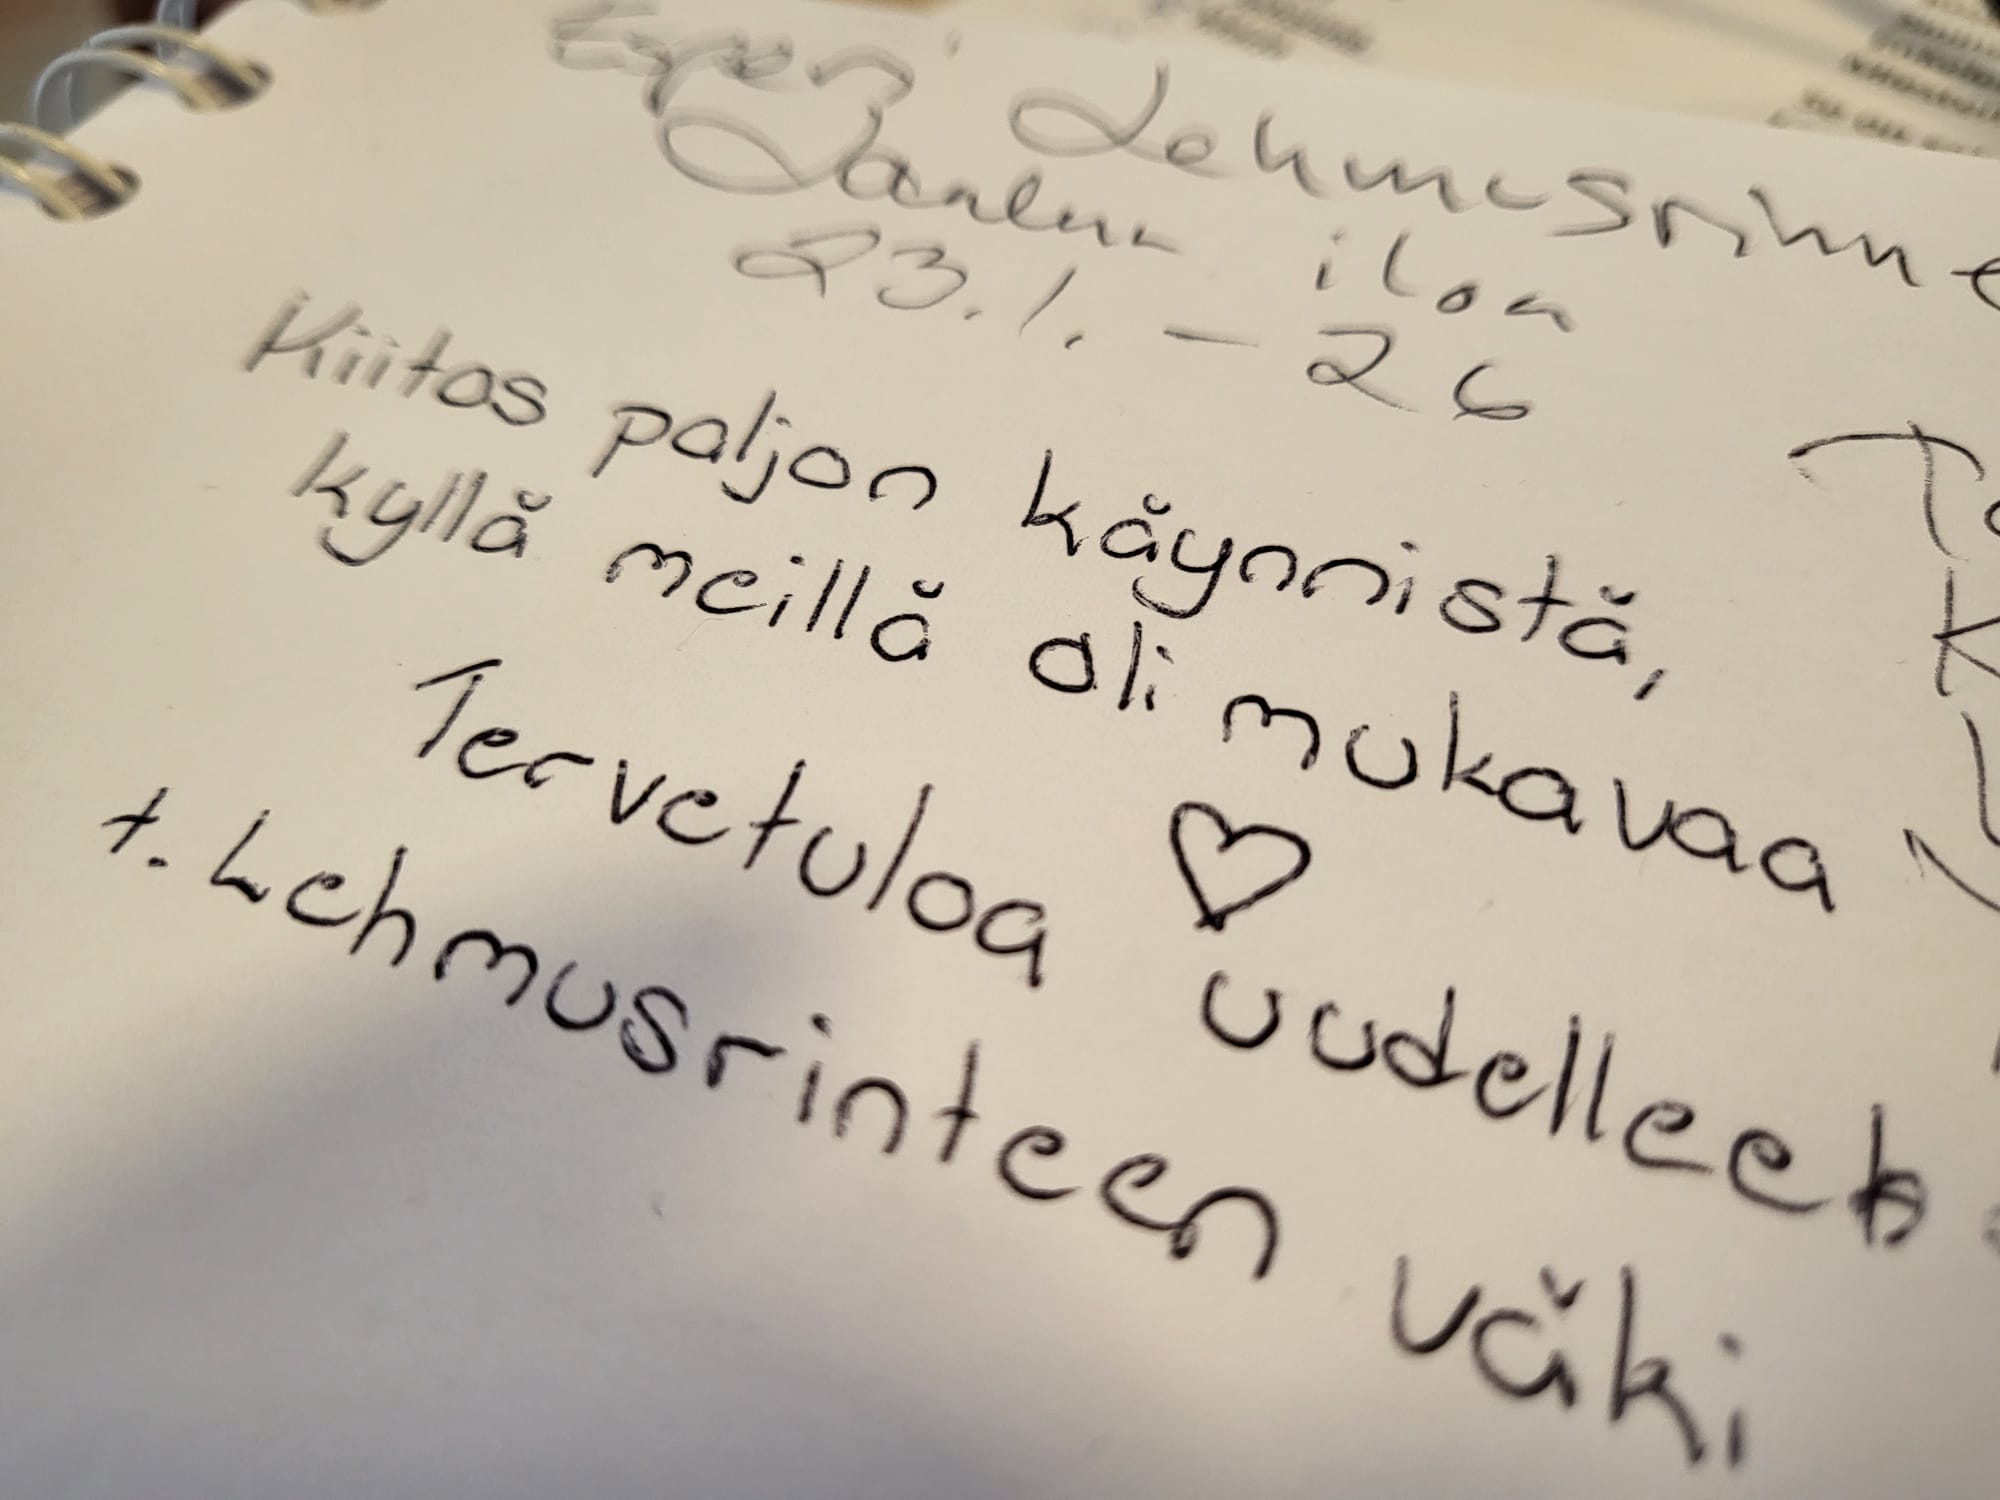 Esperi Lehmusrinne
Laulun iloa
23.1. - 26
Kiitos paljon käynnistä,
kyllä meillä oli mukavaa
Tervetuloa ♡ uudelleen
t. Lehmusrinteen väki